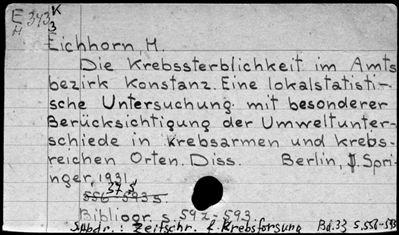 E 343 K
H 3
Eichhorn, H.
Die Krebssterblichkeit im Amts
bezirk Konstanz. Eine lokalstatisti-
sche Untersuchung mit besonderer
Berücksichtigung der Umweltunter-
schiede in krebsarmen und krebs-
reichen Orten. Diss. Berlin, J. Spri-
nger, 1931
37 S.
556-593 S.
Bibliogr. S. 592-593.
Sobdr.: Zeitschr. f. Krebsforsung Bd. 33 S. 556-593